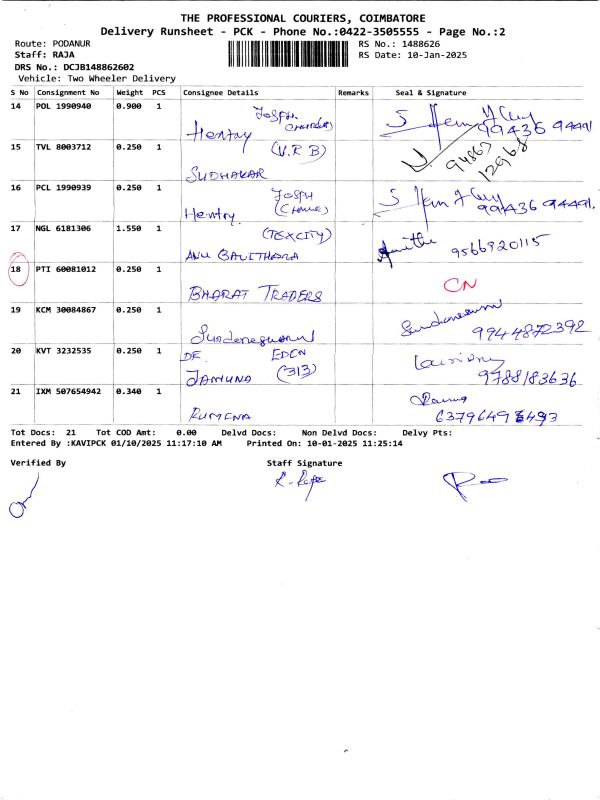 THE PROFESSIONAL COURIERS, COIMBATORE
Delivery Runsheet - PCK - Phone No.:0422-3505555 - Page No.:2
Route: PODANUR
Staff: RAJA
DRS No.: DCJB148862602
Vehicle: Two Wheeler Delivery
RS No.: 1488626
RS Date: 10-Jan-2025
S No Consignment No Weight PCS Consignee Details Remarks Seal & Signature
14 POL 1990940 0.900 1 Hentry 99436 94491
15 TVL 8003712 0.250 1 (V.R B) SUDHAKAR 94863 12968
16 PCL 1990939 0.250 1 Hentry 99436 94491.
17 NGL 6181306 1.550 1 (TEXCITY) ANU 9566920115
18 PTI 60081012 0.250 1 BHARAT TRADERS CN
19 KCM 30084867 0.250 1 9944872392
20 KVT 3232535 0.250 1 DR. EDEN JAMUNA (313) 9788183636
21 IXM 507654942 0.340 1
Tot Docs: 21 Tot COD Amt: 0.00 Delvd Docs: Non Delvd Docs: Delvy Pts:
Entered By :KAVIPCK 01/10/2025 11:17:10 AM Printed On: 10-01-2025 11:25:14
Verified By Staff Signature